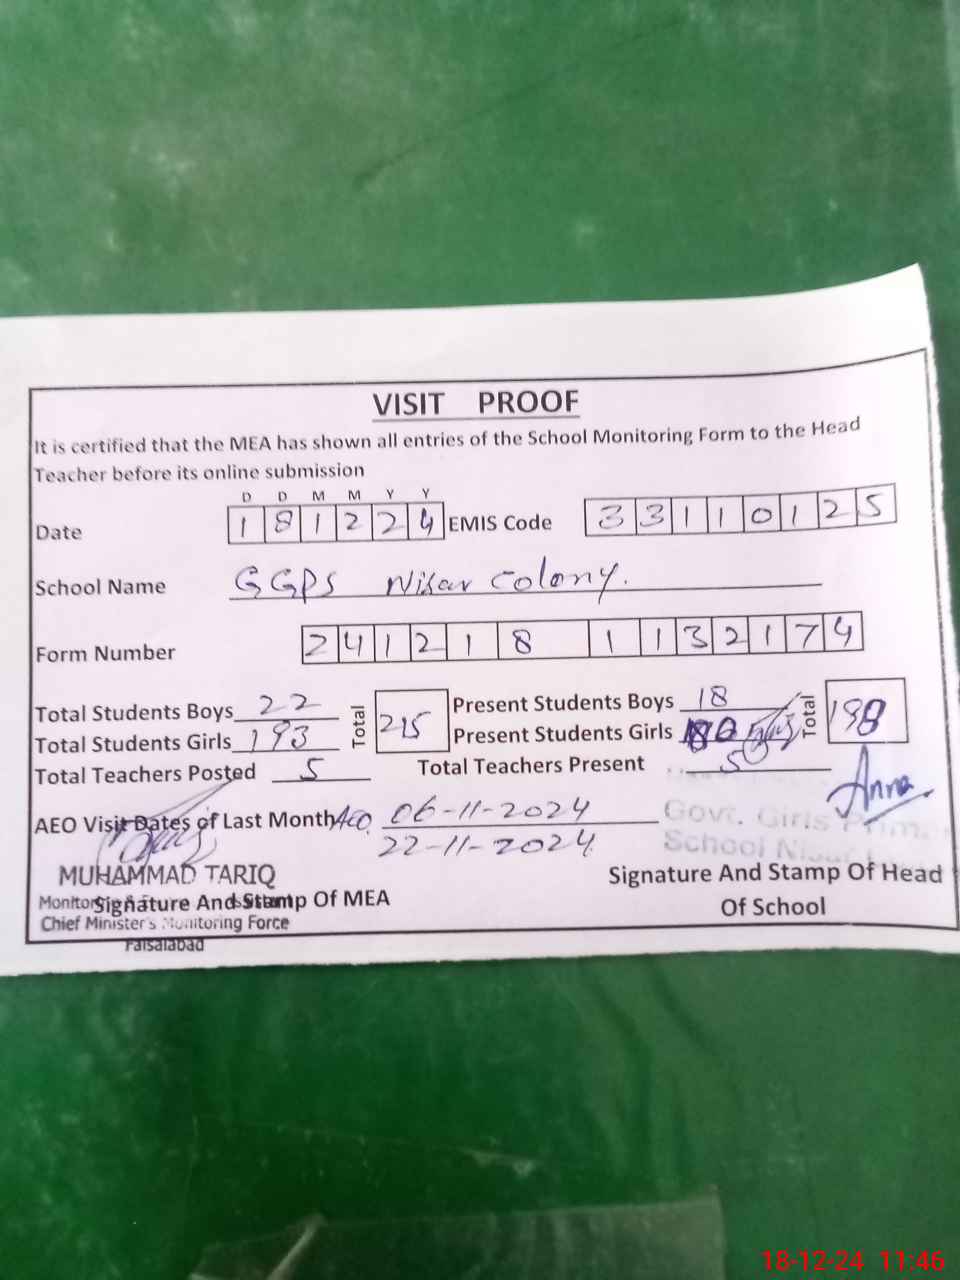 VISIT PROOF
It is certified that the MEA has shown all entries of the School Monitoring Form to the Head
Teacher before its online submission
D D M M Y Y
Date 1 8 1 2 2 4 EMIS Code 3 3 1 1 0 1 2 5
School Name GGPS Nisar Colony.
Form Number 2 4 1 2 1 8 1 1 3 2 1 7 4
Total Students Boys 22 Total 215 Present Students Boys 18 Total 198
Total Students Girls 193 Present Students Girls
Total Teachers Posted 5 Total Teachers Present 5
Anna
AEO Visit Dates of Last Month AEO 06-11-2024
22-11-2024
Govt. Girls
School Nisar
MUHAMMAD TARIQ
Signature And Stamp Of MEA
Chief Minister's Monitoring Force
Faisalabad
Signature And Stamp Of Head
Of School
18-12-24 11:46